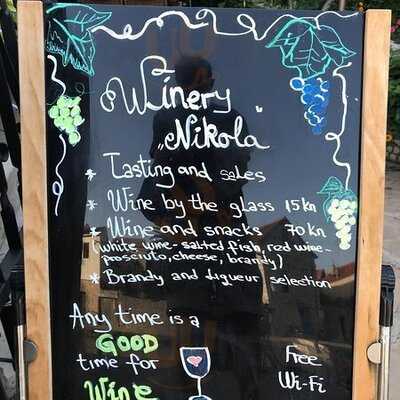 Winery
„Nikola"
* Tasting and sales
* Wine by the glass 15 kn
* Wine and snacks 70 kn
(white wine - salted fish, red wine -
prosciuto, cheese, brandy)
* Brandy and liqueur selection
Any time is a
GOOD
time for
Wine
Free
Wi-Fi